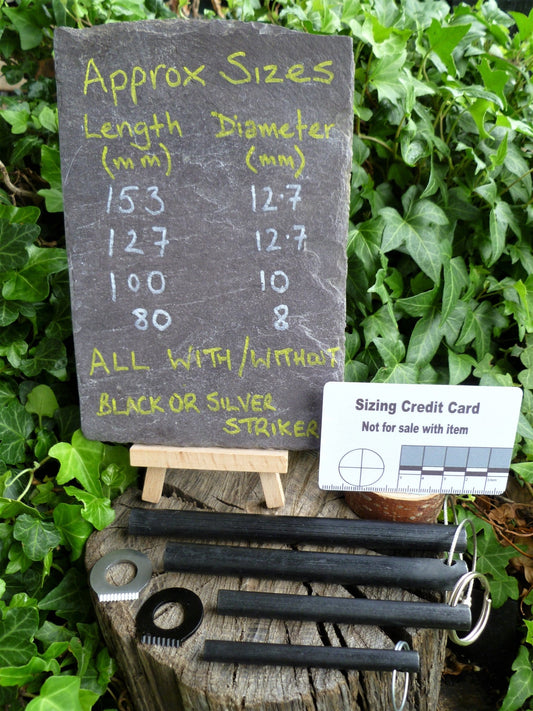 Approx Sizes
Length Diameter
(mm) (mm)
153 12.7
127 12.7
100 10
80 8
ALL WITH/WITHOUT
BLACK OR SILVER
STRIKER
Sizing Credit Card
Not for sale with item